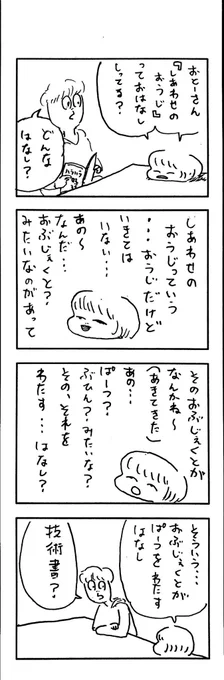 おとーさん
『しあわせの
おうじ』
っておはなし
しってる?
どんな
はなし?
しあわせの
おうじっていう
…おうじだけど
いきては
いない…
あの〜
なんだ…
おぶじぇくと?
みたいなのがあって
そのおぶじぇくとが
なんかね〜
(あきてきた)
あの…
ぱーつ?
ぶひん?みたいな?
その、それを
わたす…はなし?
そういう…
おぶじぇくとが
ぱーつをわたす
はなし
技術書の?